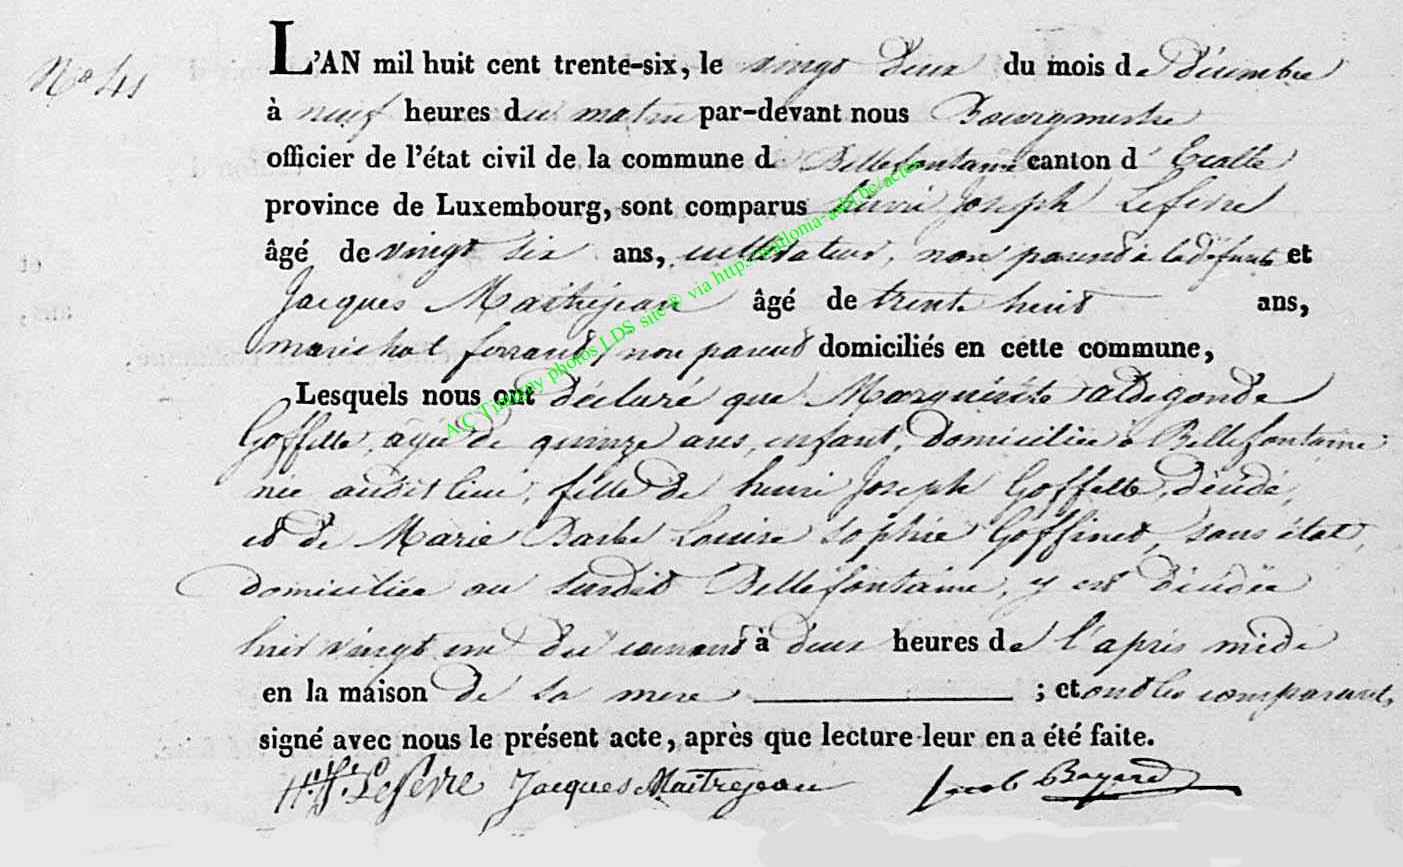 N° 41
L'AN mil huit cent trente-six, le vingt deux du mois de décembre
à neuf heures du matin par-devant nous Bourgmestre
officier de l'état civil de la commune de Bellefontaine canton d'Etalle
province de Luxembourg, sont comparus henri Joseph Lefevre
âgé de vingt six ans, cultivateur, non parend à la défunte et
Jacques Maitrejean âgé de trente huit ans,
marichal ferrand, non parend domiciliés en cette commune,
Lesquels nous ont déclaré que Marguerite aldegonde
Goffette, agée de quinze ans, enfant, domiciliée à Bellefontaine
née audit lieu, fille de henri Joseph Goffette, décédé,
et de Marie Barbe Louise Sophie Goffinet, sans état,
domiciliée au susdit Bellefontaine, y est décédée
hier vingt un du courand à deux heures de l'après midi
en la maison de sa mere ; et ond les comparants
signé avec nous le présent acte, après que lecture leur en a été faite.
H. J. Lefevre Jacques Maitrejean Jacob Bayard
AC Tintigny photos LDS site® via http://wallonia-asbl.be/actes